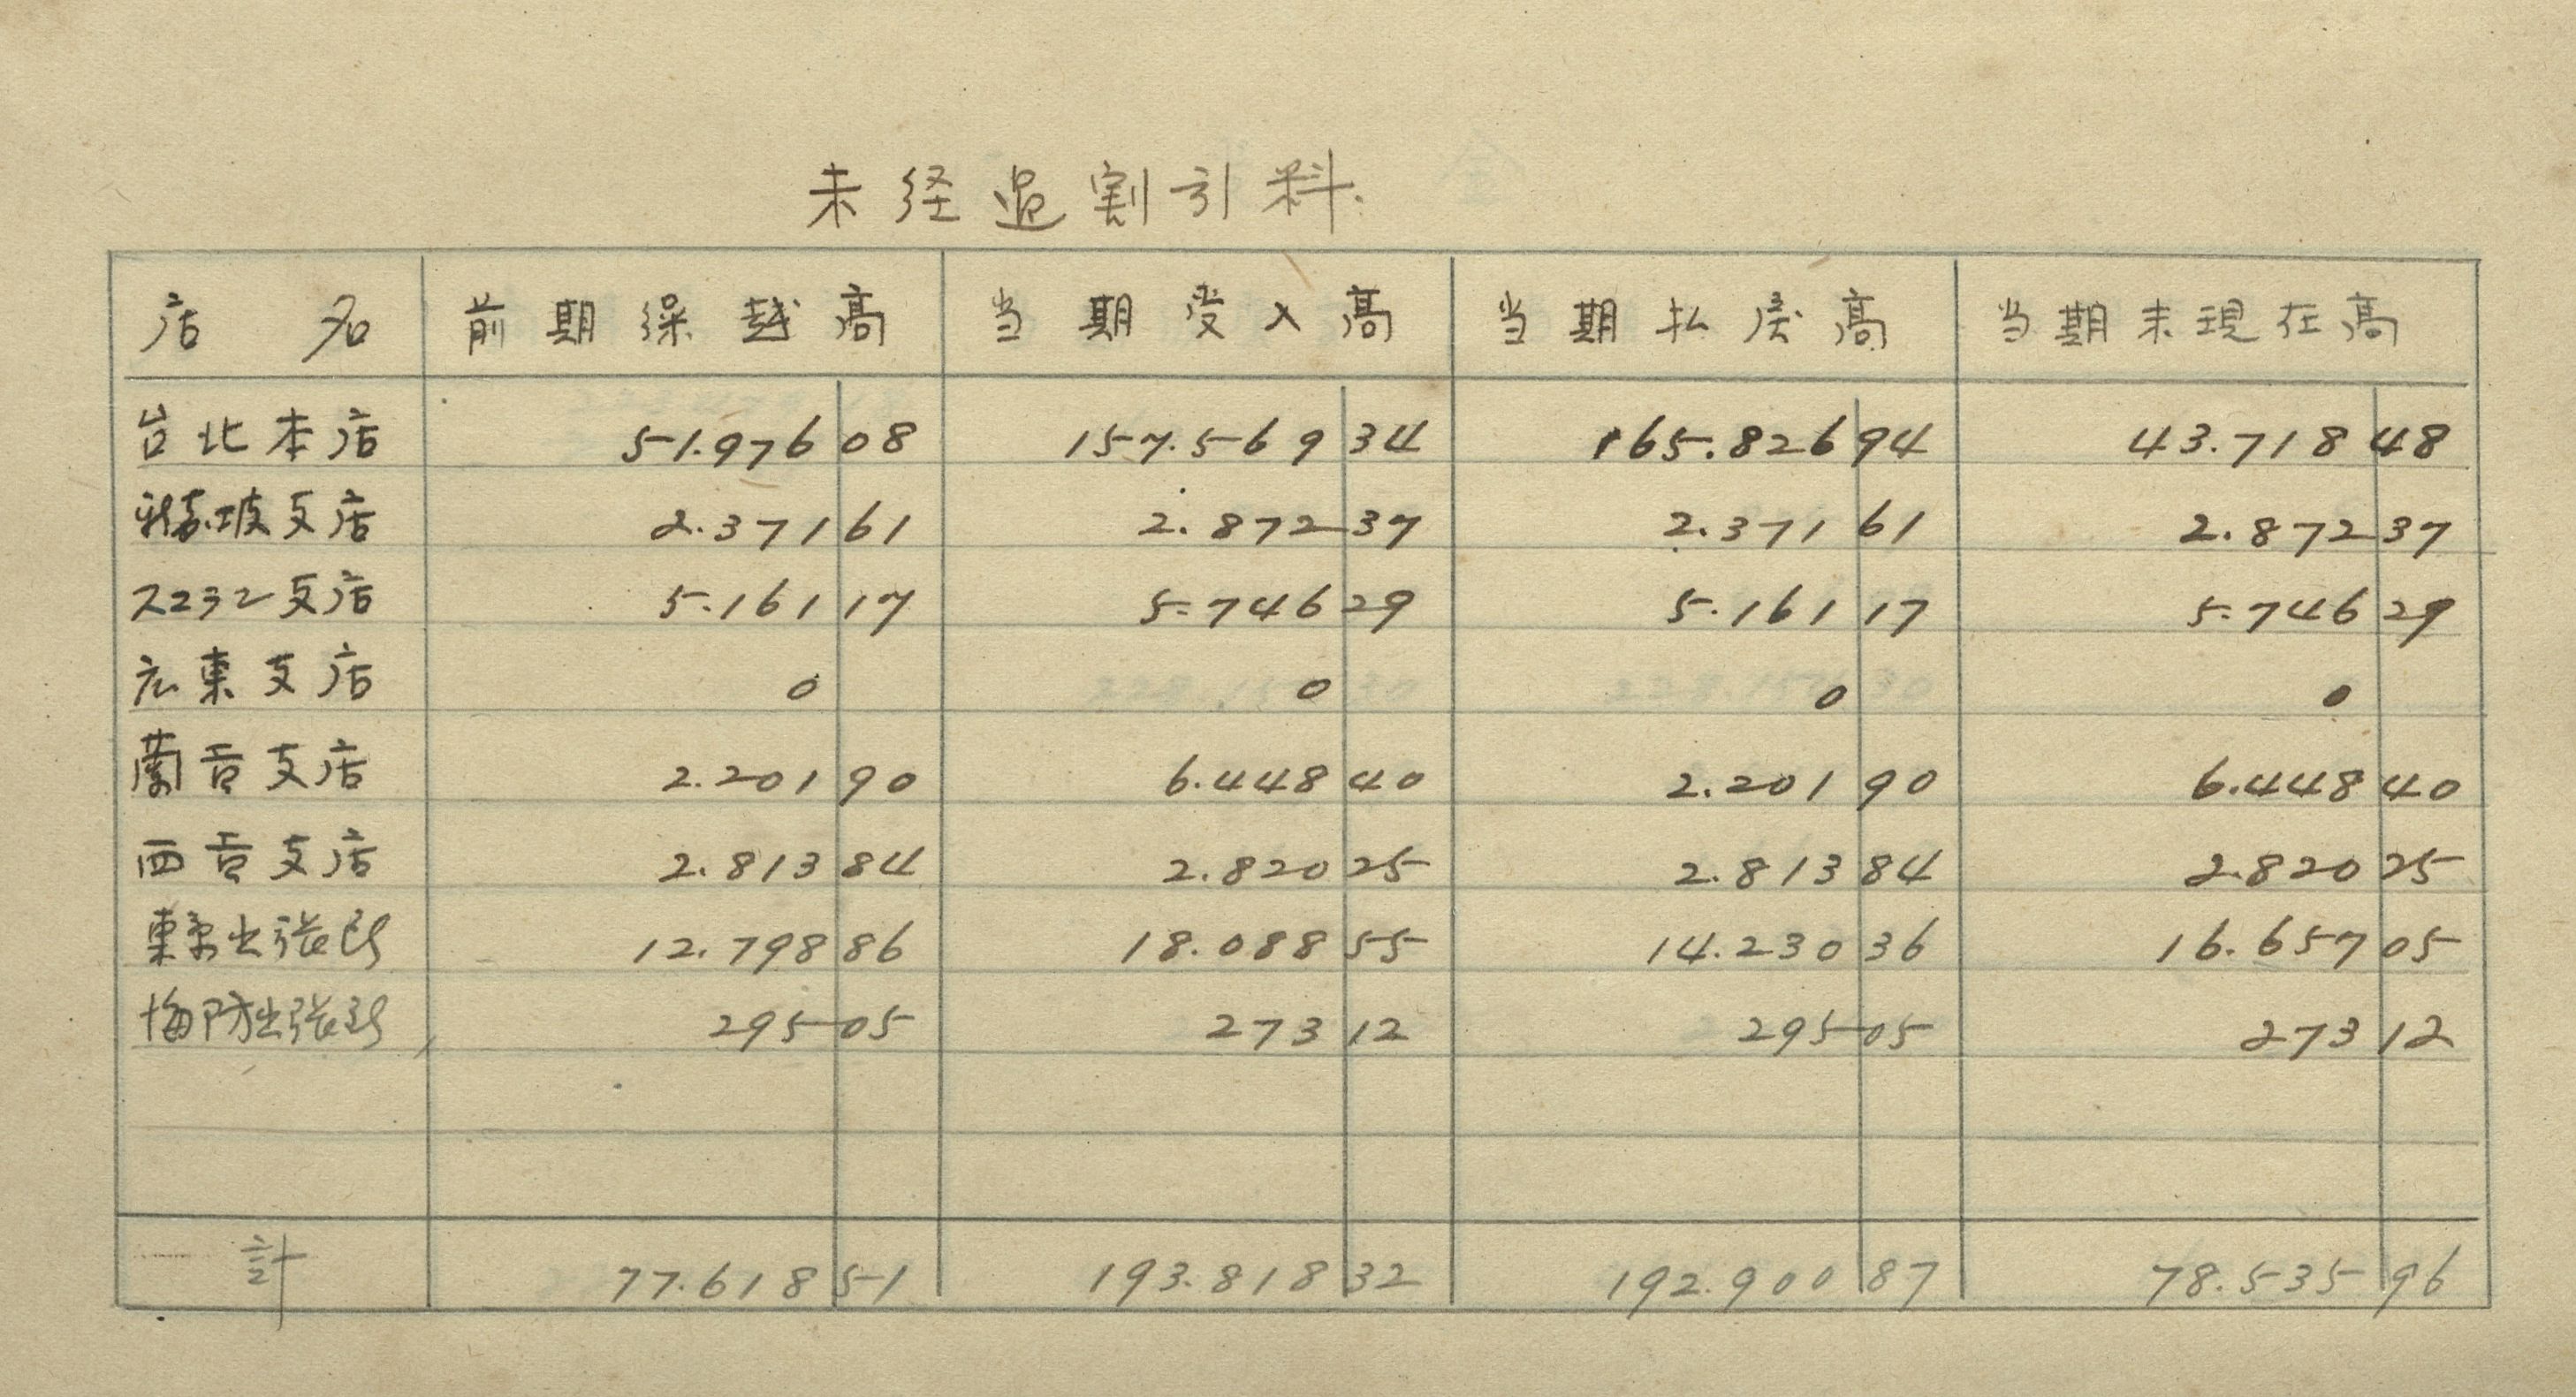 未経過割引料.
店名 前期繰越高 当期受入高 当期払戻高 当期末現在高
台北本店 51.976 08 157.569 34 165.826 94 43.718 48
新嘉坡支店 2.371 61 2.872 37 2.371 61 2.872 37
スラバヤ支店 5.161 17 5.746 29 5.161 17 5.746 29
広東支店 0 0 0 0
蘭貢支店 2.201 90 6.448 40 2.201 90 6.448 40
西貢支店 2.813 84 2.820 25 2.813 84 2.820 25
東京出張所 12.798 86 18.088 55 14.230 36 16.657 05
海防出張所 295 05 273 12 295 05 273 12
計 77.618 51 193.818 32 192.900 87 78.535 96